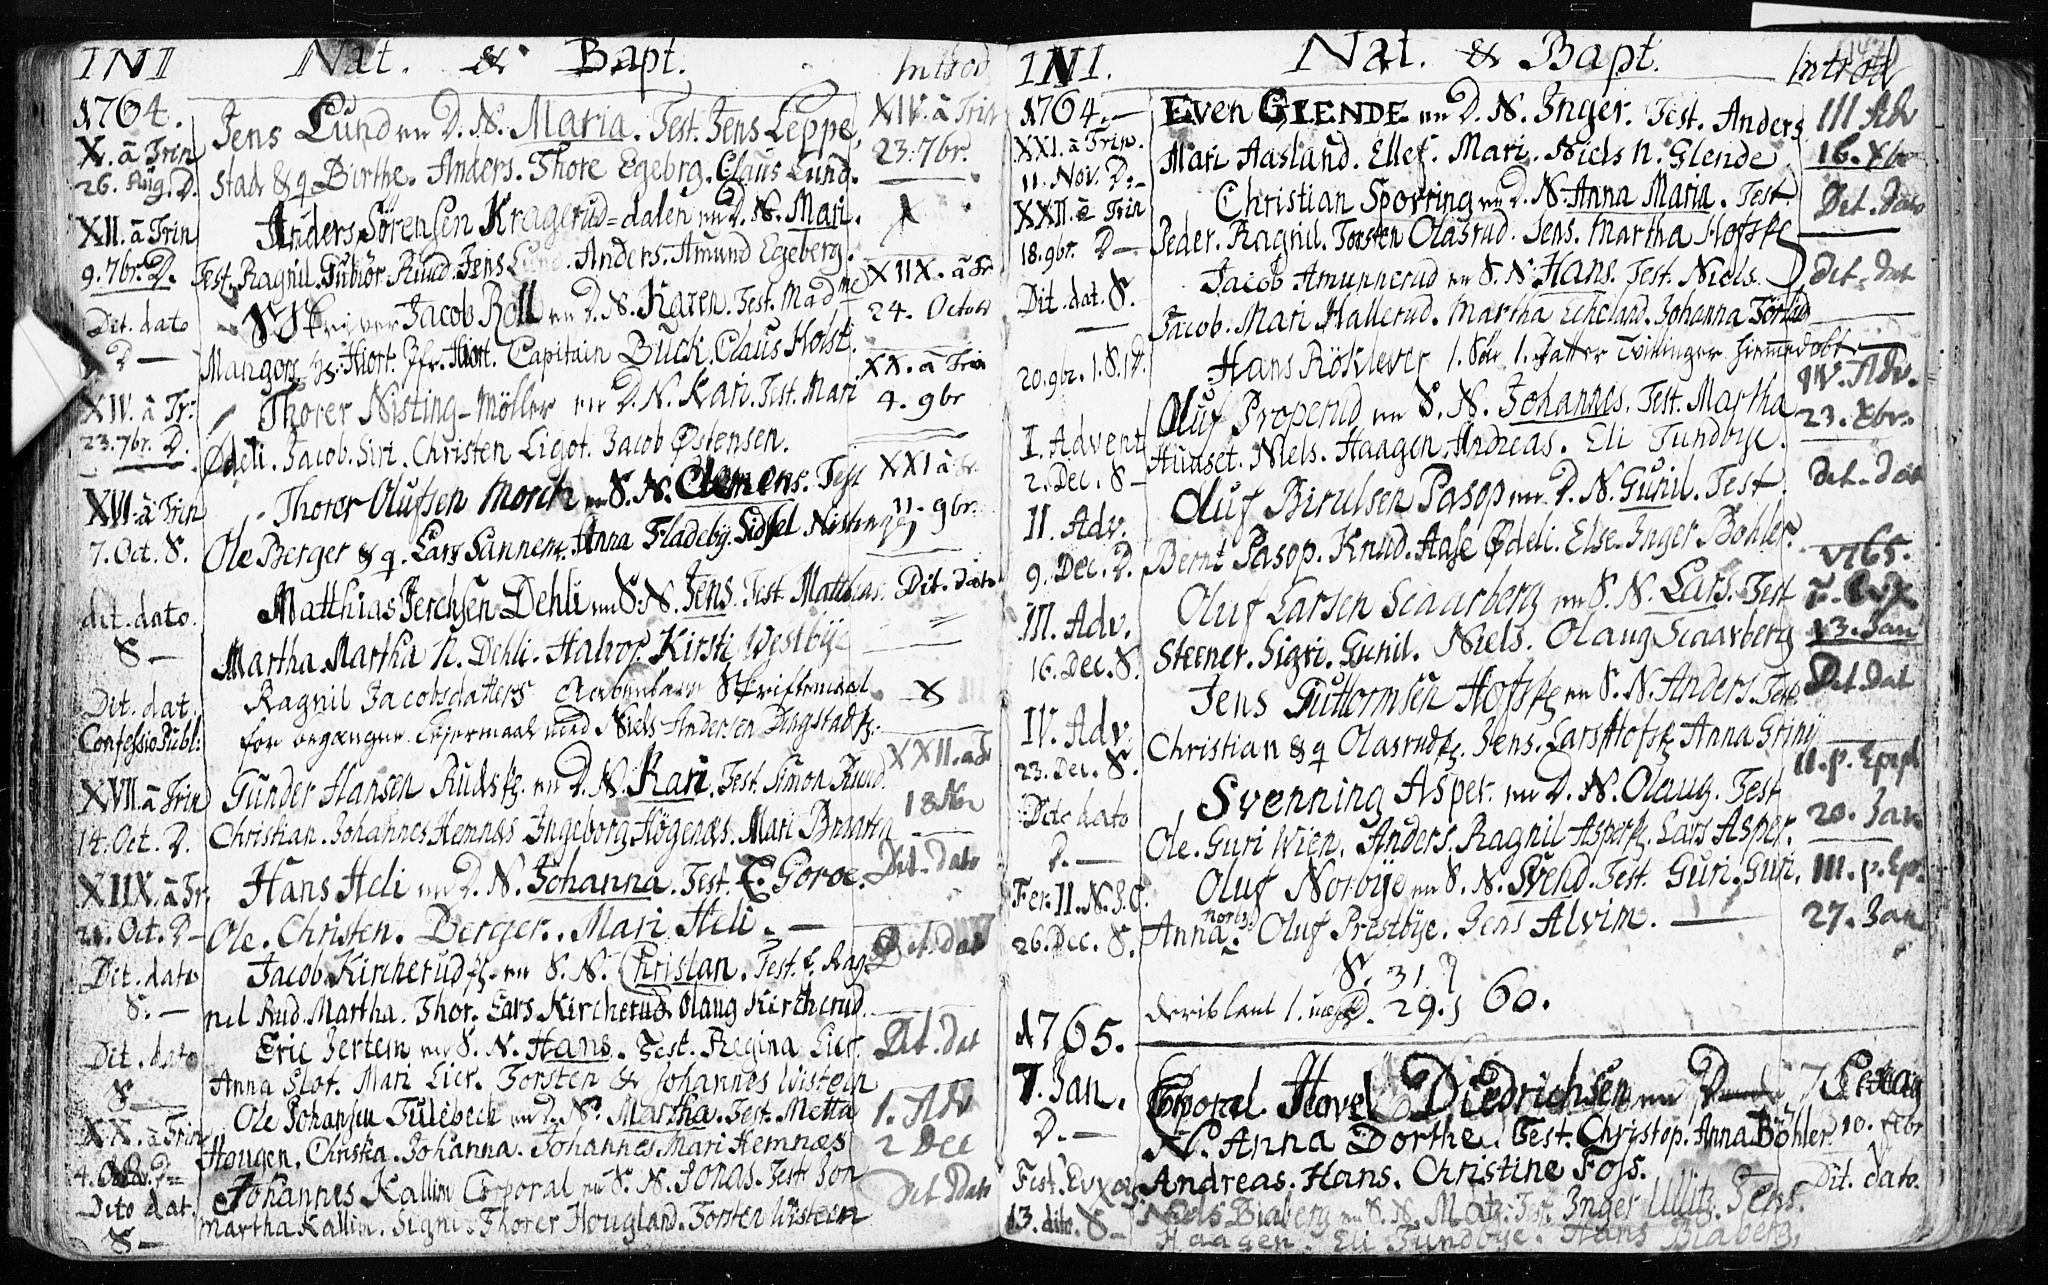 INI Nat. & Bapt. Introd
1764. Jens Lund en D. N. Maria. Test. Jens Leppe, XIV. â Trin
X. â Trin
26. Aug. D. stad & q Birthe. Anders. Thore Egebrg. Claus Lund. 23. 7br.
XII. â Trin Anders Sörensen Kragerud=dalen en D. N. Mari.
9. 7br. D. Test. Ragnil. Gubiör Ruud. Jens Lund. Anders. Amund Egeberg. XIIX. â Tr
Dit. dato Skriver Jacob Roll en D. N. Karen. Test. Madme 24. Octobr
D — Mangors, Hs. Hiort. Jfr. Hiort. Capitain Buck. Claus Holst. XX. â Trin
XIV. â Tr. Thorer Nisting-Möller en D. N. Kari. Test. Mari 4. 9br
23. 7br. D. Ødeli. Jacob. Siri. Christen Ligot. Jacob Østensen.
XVI. â Trin Thorer Olufsen Morch en S. N. Clemens. Test XXI â Tr.
7. Oct. S. Ole Berger & q. Lars Sannem. Anna Fladeby. Sidsel Nisting 11. 9br.
dit. dato. Matthias Jerchsen Dehli en S. N. Jens. Test. Matthias. Dit. dato
S — Martha. Martha N. Dehli. Halvor. Kirsti Westbÿe
Dit. dat. Ragnil Jacobsdatters Aabenbare Skriftemaal
Confessio Publ: for begangne Leiermaal med Niels Andersen Dingstad
XVII. â Trin Gunder Hansen Ruds en D. N. Kari. Test. Simon Ruud. XXII. â Tr
14. Oct. D. Christian. Johannes Hemnæs Ingeborg Högenæs. Mari Braaten 18 Nbr
XIIX. â Tr. Hans Heli en D. N. Johanna. Test. C. Goroe. Dit. dato
21. Oct. D — Ole. Christen. Berger. Mari Heli. — Dit. dat
Dit. dato Jacob Kircherud en S. N. Christian. Test. Rag-
S. — nil Rud. Martha. Thor. Lars Kircherud. Olaug Kircherud.
Dit. dato Eric Jertem en S. N. Hans. Test. Regina Lier. Dit. dat
S — Anna Slot. Mari Lier. Torsten & Johannes Wisteen
XX. â Trin Ole Johansen Tulebech en D. N. Martha. Test. Metta 1. Adv
Hougen. Christia. Johanna. Johannes. Mari Hemnæs 2 Dec
Dito dat. Johannes Kallim Corporal en S. N. Jonas. Test. Jon Dit. Dato
S — Martha Kallim. Signe. Thorer Hougland. Torsten Wisteen
INI. Nat. & Bapt. Introd
1764. — Even GLENDE en D. N. Inger. Test. Anders III Adv
XXI. â Trin.
11. Nov. D. — Mari Aasland. Ellef. Mari. Niels N. Glende 16. Xbr
XXII. â Trin Christian Sporring en D. N. Anna Maria. Test. Dit. dato
18. 9br. D — Peder. Ragnil. Torsten Olasrud. Jens. Martha Hofske
Dit. dat. S. Jacob Amunnerud en S. N. Hans. Test. Niels. dit. dat
Jacob. Mari Hallerud. Martha Echeland. Johanna Törlid
20. 9br. 1. S. 1 D. Hans Röklever 1. Sön 1. Datter Tvillinger hiemmedøbt
I. Advent Oluf Properud en S. N. Johannes. Test. Martha IV. Adv.
2. Dec. S — Huuset. Niels. Haagen. Andreas. Eli Tundbye. 23. Xbr.
II. Adv. Oluf Birulsen Pasop en D. N. Gunil. Test. dit. dat
9. Dec. D. Bernt Pasop. Knud. Aase Ødeli. Else. Inger Bohler.
III. Adv. Oluf Larsen Scaarberg en S. N. Lars. Test 1765.
16. Dec. S. Steener. Sigri. Gunil. Niels. Olaug Scaarberg 13. Jan
IV. Adv. Jens Guttormsen Hofske en S. N. Anders. Test. Dit. dat
23. Dec. S. Christian & q Olasrud. Jens. Lars Hofsk Anna Griny
Dito dato Svenning Asper. en D. N. Olaug. Test II. p. Epiph
D. — Ole. Guri Wien. Anders. Ragnil Asper. Lars Asper. 20. Jan
Fer. II. N. J. C. Oluf Norbÿe en S. N. Svend. Test. Guri. Guri. III. p. Ep.
26. Dec. S. Anna Norby. Oluf Prestbÿe. Jens Alvim. — 27. Jan
S. 31.
deriblant 1. D. 29. } 60.
1765.
7. Jan. Corporal Havel Diedrichsen en
D. — N. Anna Dorthe. Test. Christop. Anna Böhler. 10. Febr
Andreas. Hans. Christine Foss. Dit. dato.
13. dito. S — Niels Biaberg en S. N. Matz. Test. Inger Ullitz. Jens.
Haagen. Eli Tundbye. Hans Biaberg.